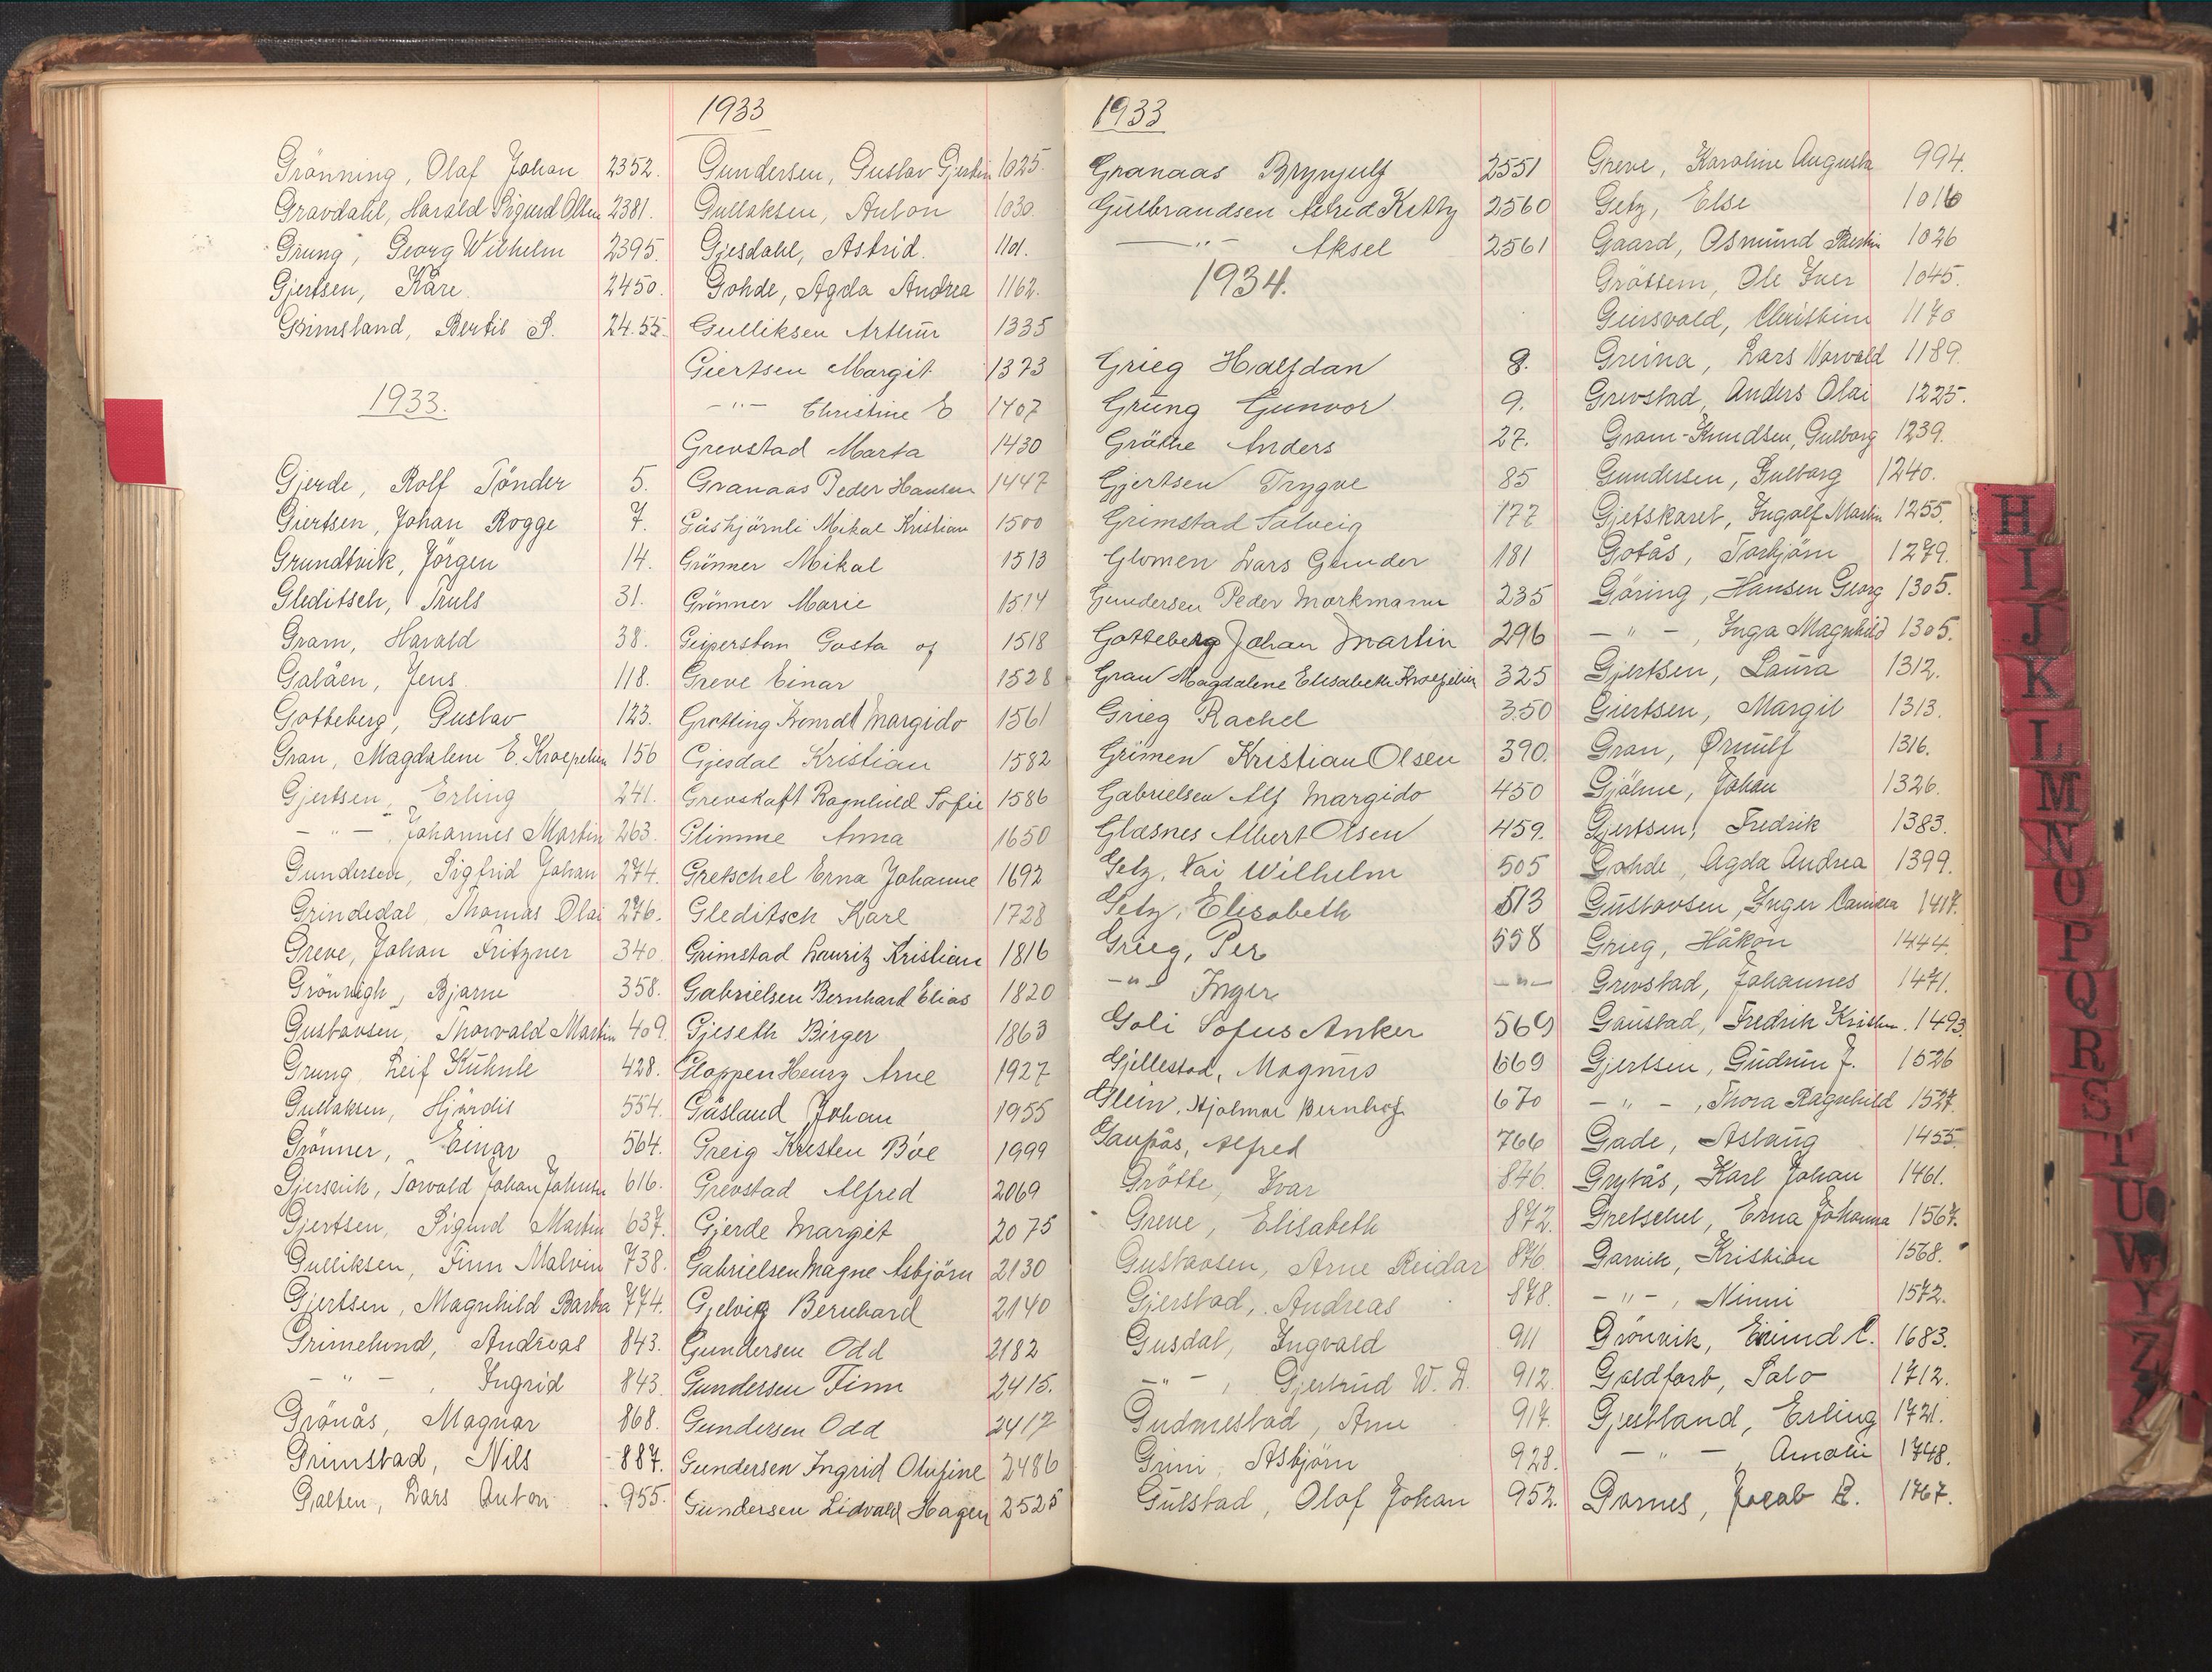 Grönning, Olaf Johan 2352.
Gravdahl, Harald Sigurd Olsen 2381.
Grung, Georg Wilhelm 2395.
Gjertsen, Kåre. 2450.
Grimsland, Bertil S. 24.55.
1933.
Gjerde, Rolf Tönder 5.
Giertsen, Johan Rogge 7.
Grundtvik, Jörgen 14.
Gleditsch, Truls 31.
Gram, Harald 38.
Galåen, Jens. 118.
Gotteberg, Gustav 123.
Gran, Magdalene E. Kroepelien 156
Gjertsen, Erling 241.
— " — Johannes Martin 263.
Gundersen, Sigfrid Johan 274.
Grindedal, Thomas Olai 276.
Greve, Johan Fritzner 340
Grönnigh, Bjarne 358.
Gustavsen, Thorvald Martin 409.
Grung, Leif Kuhnle 428.
Gullaksen, Hjördis 554.
Grönner, Einar 564.
Torvald Johan 616.
Gjertsen, Sigurd Martin 637.
Gulliksen, Finn Malvin 738.
Gjertsen, Magnhild Barba 774.
Grimelund, Andreas 843.
— " — , Ingrid 843.
Grönås, Magnar 868.
Grimstad, Nils 887.
Galten, Lars Anton 955.
1933
Gundersen, Gustav Gjertin 1025.
Gullaksen, Anton 1030.
Gjesdahl, Astrid. 1101.
Gohde, Agda Andrea 1162.
Gulliksen Arthur 1335
Giertsen Margit 1373
— " — Christine E 1407
Grevstad Marta 1430
Granaas Peder Hansen 1447
Gåshjörnli Mikal Kristian 1500
Grönner Mikal 1513
Grönner Marie 1514
Geijerstam Gosta af 1518
Greve Einar 1528
Grotting Konrdt Margido 1561
Gjesdal Kristian 1582
Grevskaft Ragnhild Sofie 1586
Glimme Anna 1650
Gretschel Erna Johanne 1692
Gleditsch Karl 1728
Grimstad Lauritz Kristian 1816
Gabrielsen Bernhard Elias 1820
Gjeseth Birger 1863
Gloppen Henry Arne 1927
Gåsland Johan 1955
Greig Kristen Böe 1999
Grevstad Alfred 2069
Gjerde Margit 2075
Gabrielsen Magne Asbjörn 2130
Gjelvig Bernhard 2140
Gundersen Odd 2182
Gundersen Finn 2415.
Gundersen Odd 2417
Gundersen Ingrid Olufine 2486
Gundersen Lidvald Hagen 2525
1933
Granaas Brynjulf 2551
Gulbrandsen Astrid Kitty 2560
— " — Aksel 2561
1934.
Grieg Halfdan 8.
Grung Gunvor 9.
Gröthe Anders 27.
Gjertsen Trygve 85
Grimstad Solveig 177
Glomen Lars Gunder 181
Gundersen Peder Markmann 235
Gotteberg Johan Martin 296
Gran Magdalene Elisabeth Kroepelien 325
Grieg Rachel 350
Grimen Kristian Olsen 390.
Gabrielsen Alf Margido 450
Glæsnes Albert Olsen 459.
Getz, Kai Wilhelm 505
Getz, Elisabeth 513
Grieg, Per 558
— " — Inger — " —
Goli Sofus Anker 569
Gjellestad, Magnus 669
Glein, Hjalmar Bernhof 670
Gaupås, Alfred 766
Grötte, Ivar 846.
Greve, Elisabeth 872.
Gustavsen, Arne Reidar 876.
Gjerstad, Andreas 878.
Gusdal, Ingvald 911
— " — , Gjertrud W. D. 912.
Gudmestad, Arne 917.
Grini, Asbjörn 928.
Gulstad, Olaf Johan 952.
Greve, Karoline Augusta 994.
Getz, Else 1016
Gaard, Osmund 1026
Gröttem, Ole Iver 1045.
Geirsvold, Christine 1170
Greina, Lars Norvald 1189.
Grevstad, Anders Olai 1225.
Gram-Knudsen, Gulborg 1239.
Gundersen, Gulborg 1240.
Gjetskaret, Ingolf Martin 1255.
Gotås, Torbjörn 1279.
Göring, Hansen Georg 1305.
— " — , Inga Magnhild 1305.
Gjertsen, Laura 1312.
Giertsen, Margit 1313.
Gran, Ørnulf 1316.
Gjölme, Johan 1326.
Gjertsen, Fredrik 1383.
Gohde, Agda Andrea 1399.
Gustavsen, Inger Camilla 1417.
Grieg, Håkon 1444.
Grevstad, Johannes 1471.
Gaustad, Fredrik Kristian. 1493.
Gjertsen, Gudrun J. 1526
— " — , Thora Ragnhild 1527.
Gade, Aslaug 1455
Grytås, Karl Johan 1461.
Gretschel, Erna Johanna 1567.
Garvik, Kristian 1568.
— " — , Ninni 1572.
Grönvik, Eivind C. 1683.
Goldfarb, Salo 1712.
Gjestland, Erling 1721.
— " — , Amalie 1748.
Garnes, Jacob R. 1767.
H
I
J
K
L
M
N
O
P
Q
R
S
T
U
W
Y
Z